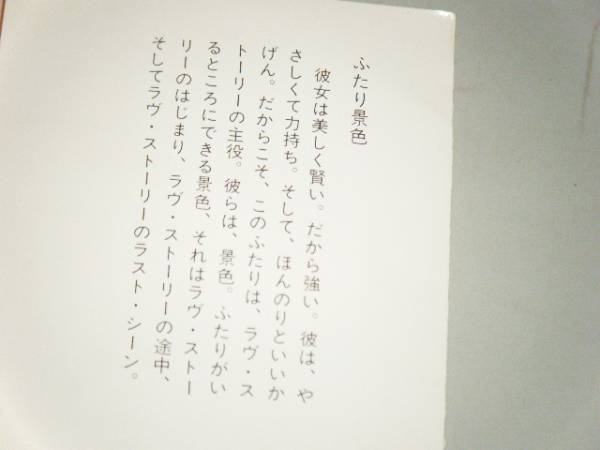 ふたり景色
彼女は美しく賢い。だから強い。彼は、や
さしくて力持ち。そして、ほんのりといいか
げん。だからこそ、このふたりは、ラヴ・ス
トーリーの主役。彼らは、景色。ふたりがい
るところにできる景色、それはラヴ・ストー
リーのはじまり、ラヴ・ストーリーの途中、
そしてラヴ・ストーリーのラスト・シーン。